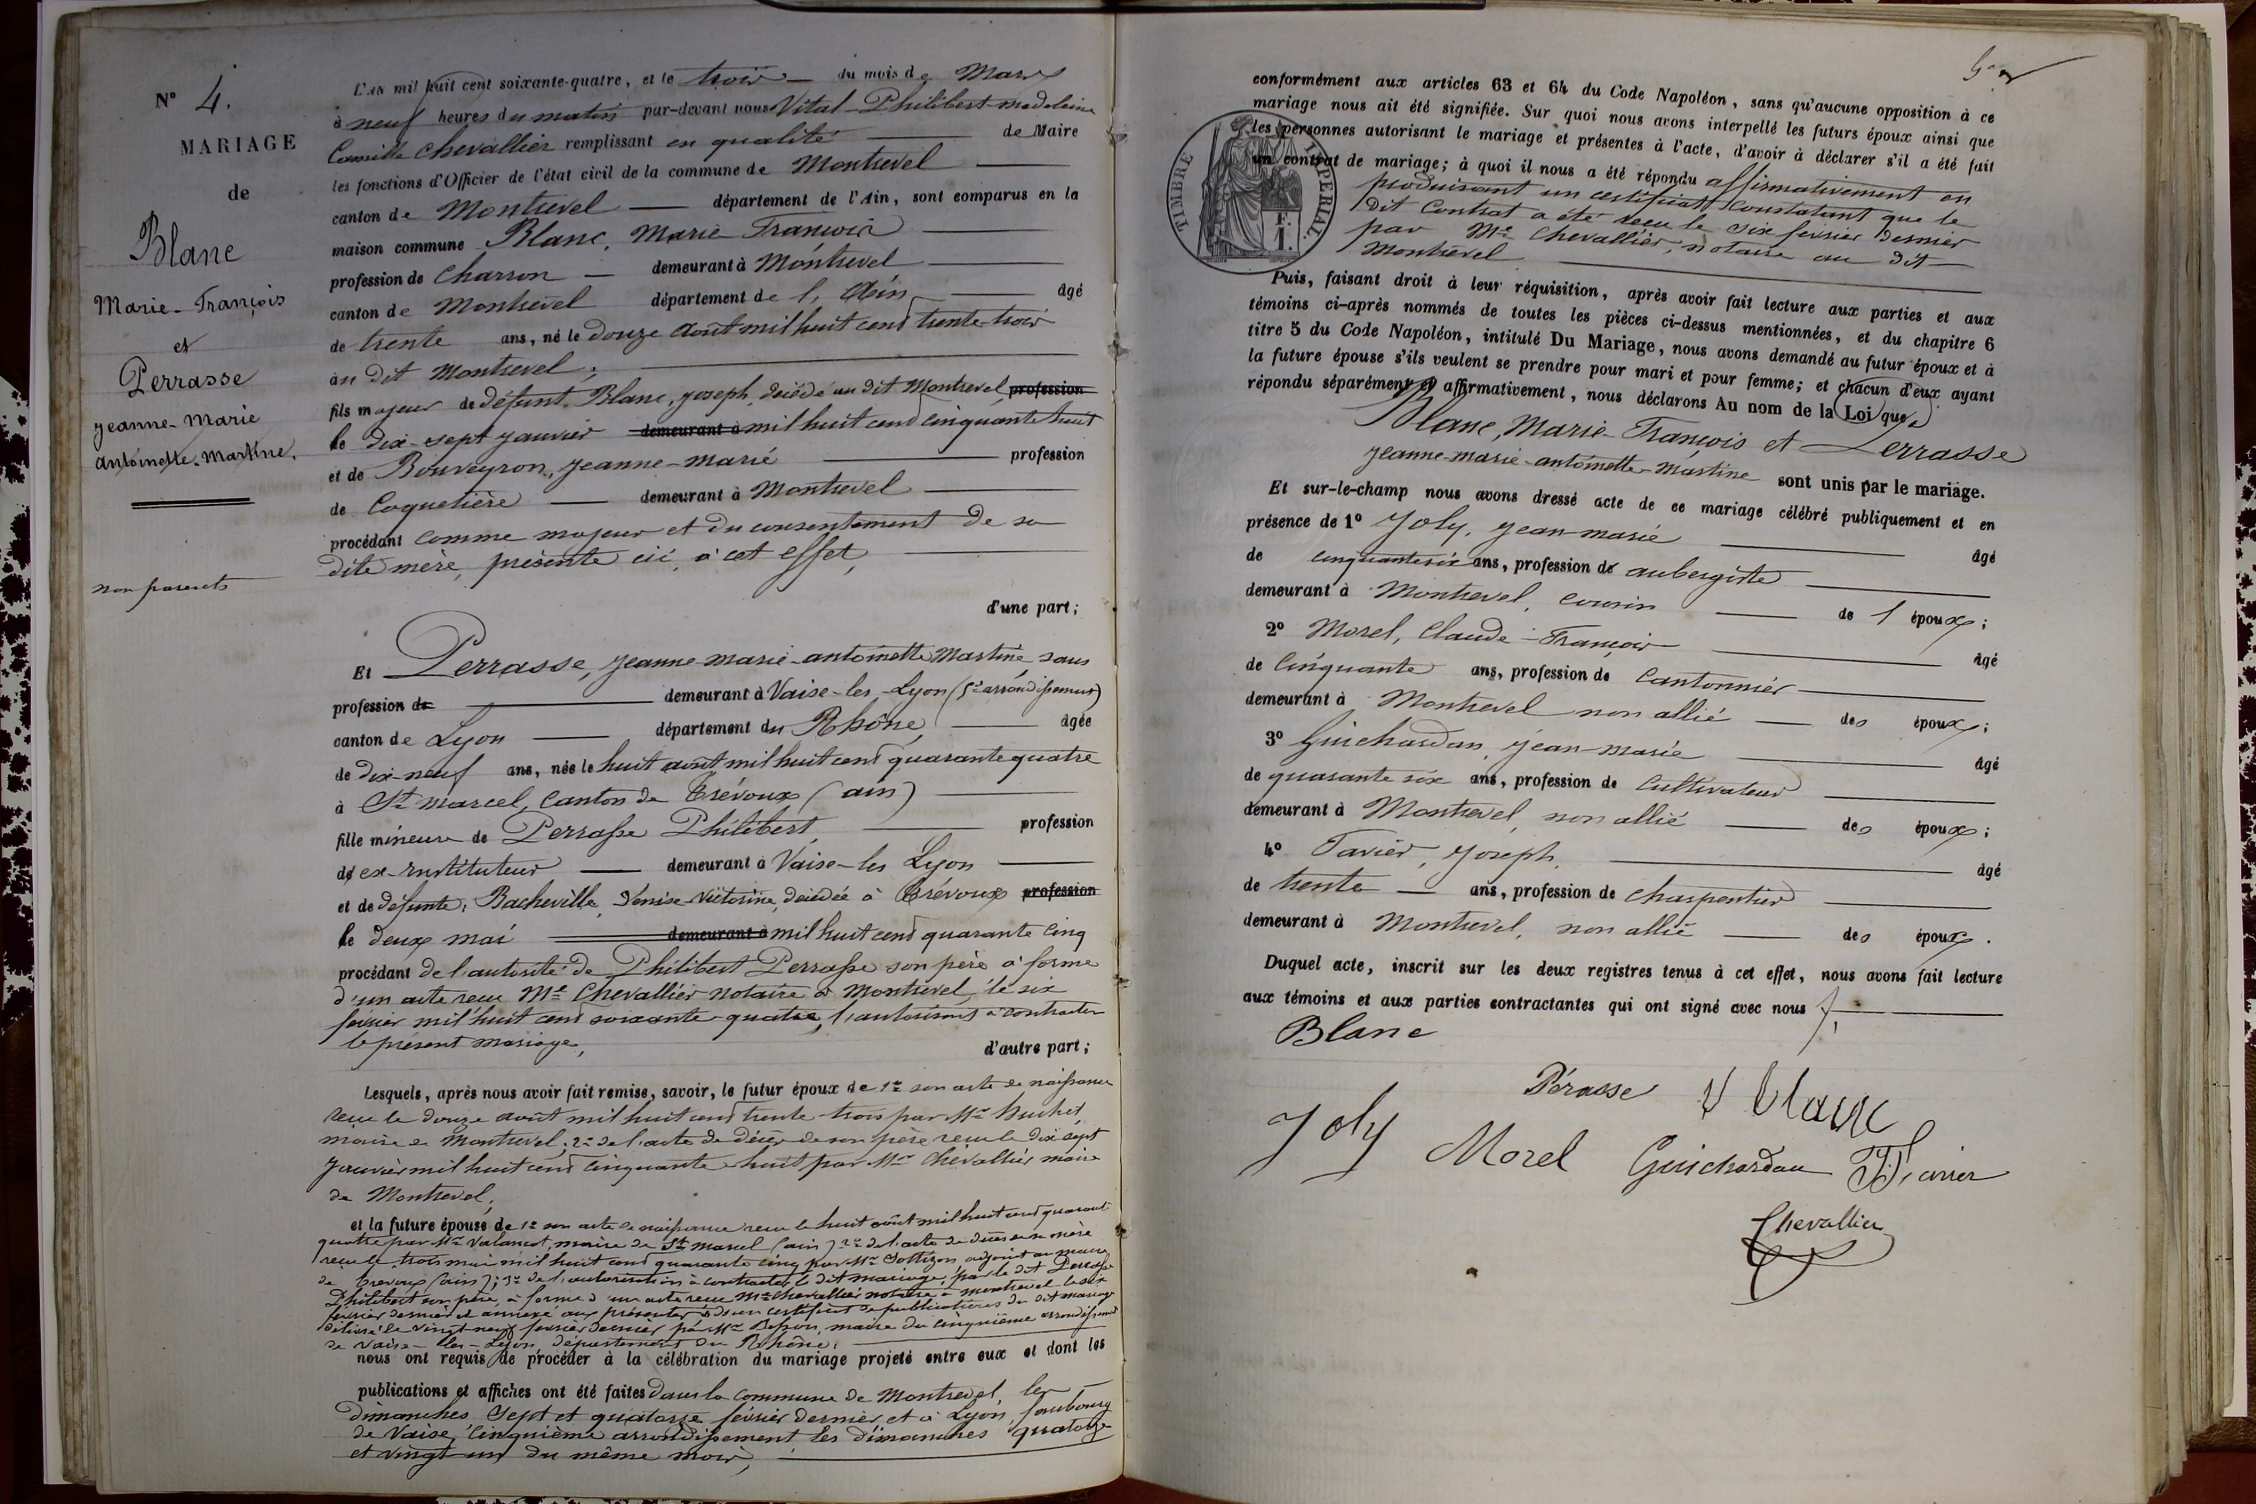 N° 4.
MARIAGE
de
Blanc
Marie-François
et
Perrasse
Jeanne-Marie
antoinette-Martine.
non parents
L'AN mil huit cent soixante-quatre, et le trois du mois de Mars
à neuf heures du matin par-devant nous Vital-Philibert-madeleine
Camille Chevallier remplissant en qualité de Maire
les fonctions d'Officier de l'état civil de la commune de Montrevel
canton de Montrevel département de l'Ain, sont comparus en la
maison commune Blanc, Marie François
profession de charron demeurant à Montrevel
canton de Montrevel département de l'Ain âgé
de trente ans, né le douze août mil huit cent trente-trois
au dit Montrevel;
fils majeur de défunt Blanc, Joseph, décédé au dit Montrevel profession
le dix-sept janvier demeurant à mil huit cent cinquante huit
et de Bouveyron, Jeanne-Marie profession
de Coquetière demeurant à Montrevel
procédant comme majeur et du consentement de sa
dite mère, présente ici à cet effet,
d'une part;
Et Perrasse, Jeanne-marie-antoinette Martine, sans
profession de demeurant à Vaise-les-Lyon (5e arrondissement)
canton de Lyon département du Rhône, âgée
de dix-neuf ans, née le huit août mil huit cent quarante quatre
à St marcel, canton de Trévoux (ain)
fille mineure de Perrasse Philibert, profession
d'ex-instituteur demeurant à Vaise-les Lyon
et de défunte, Bacheville, Denise-Victorine, décédée à Trévoux profession
le deux mai demeurant à mil huit cent quarante cinq
procédant de l'autorité de Philibert Perrasse son père à forme
d'un acte recu Me Chevallier notaire à Montrevel, le six
février mil huit cent soixante-quatre, l'autorisant à contracter
le présent mariage, d'autre part;
Lesquels, après nous avoir fait remise, savoir, le futur époux de 1° son acte de naissance
recu le douze août mil huit cent trente-trois par Mr
maire de Montrevel; 2° de l'acte de décès de son père recu le dix sept
janvier mil huit cent cinquante-huit par Mr Chevallier maire
de Montrevel,
et la future épouse de 1° son acte de naissance recu le huit août mil huit cent quarante
quatre par Mr maire de St Marcel (ain) 2° de l'acte de décès de sa mère
recu le trois mai mil huit cent quarante cinq par Mr adjoint au maire
de Trévoux (ain); 3° de l'autorisation à contracter le dit mariage, par le dit Perrasse
Philibert son père, à forme d'un acte recu Me Chevallier notaire à Montrevel le six
février dernier et annexé aux présentes d'un certificat de publications du dit mariage
délivré le vingt-neuf février dernier par Mr maire du cinquième arrondissement
de Vaise-les-Lyon département du Rhône;
nous ont requis de procéder à la célébration du mariage projeté entre eux et dont les
publications et affiches ont été faites dans la commune de Montrevel, les
dimanches sept et quatorze février dernier et à Lyon, faubourg
de Vaise, cinquième arrondissement les dimanches quatorze
et vingt-un du même mois,
conformément aux articles 63 et 64 du Code Napoléon, sans qu'aucune opposition à ce
mariage nous ait été signifiée. Sur quoi nous avons interpellé les futurs époux ainsi que
les personnes autorisant le mariage et présentes à l'acte, d'avoir à déclarer s'il a été fait
un contrat de mariage; à quoi il nous a été répondu affirmativement en
produisant un certificat constatant que le
dit Contrat a été recu le six février dernier
par Me Chevallier, notaire au dit
Montrevel
TIMBRE IMPERIAL.
Puis, faisant droit à leur réquisition, après avoir fait lecture aux parties et aux
témoins ci-après nommés de toutes les pièces ci-dessus mentionnées, et du chapitre 6
titre 5 du Code Napoléon, intitulé Du Mariage, nous avons demandé au futur époux et à
la future épouse s'ils veulent se prendre pour mari et pour femme; et chacun d'eux ayant
répondu séparément et affirmativement, nous déclarons Au nom de la Loi que
Blanc, Marie-François et Perrasse
Jeanne-marie-antoinette-Martine sont unis par le mariage.
Et sur-le-champ nous avons dressé acte de ce mariage célébré publiquement et en
présence de 1° Joly, Jean-marie âgé
de cinquante six ans, profession de aubergiste
demeurant à Montrevel, cousin de l époux;
2° Morel, Claude-François âgé
de Cinquante ans, profession de Cantonnier
demeurant à Montrevel non allié des époux;
3° Guichardan, Jean-marie âgé
de quarante six ans, profession de Cultivateur
demeurant à Montrevel, non allié des époux;
4° Favier, Joseph, âgé
de trente ans, profession de charpentier
demeurant à Montrevel, non allié des époux.
Duquel acte, inscrit sur les deux registres tenus à cet effet, nous avons fait lecture
aux témoins et aux parties contractantes qui ont signé avec nous
Blanc
Pérasse
Joly Morel Guichardan
Chevallier